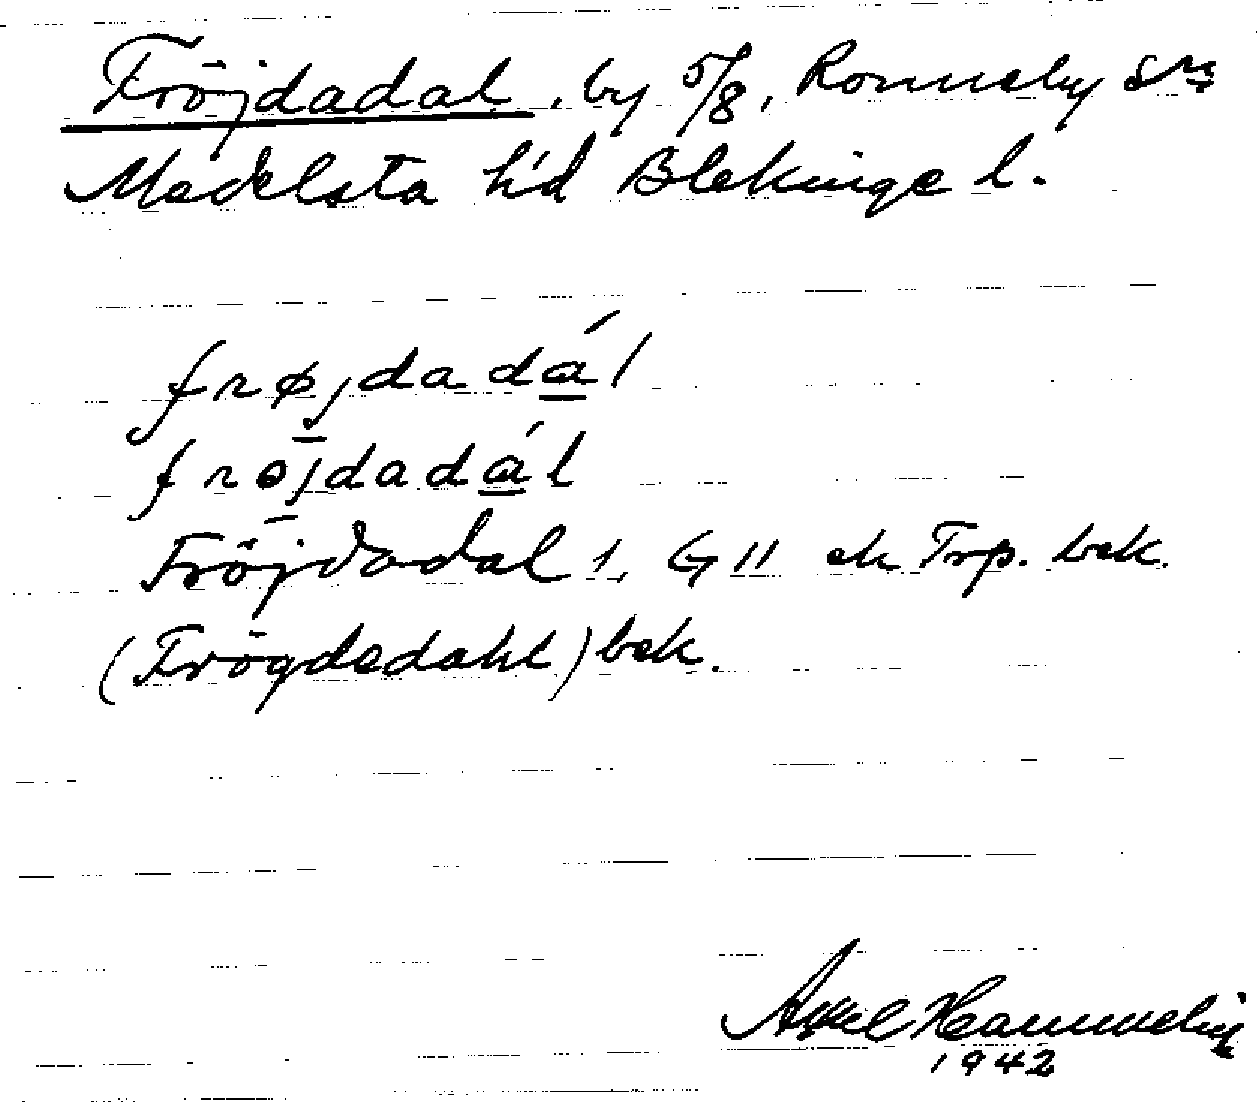 Fröjdadal, by 5/8, Ronneby sn
Medelsta h'd Blekinge l.
frøjdadál
frøjdadál
Fröjdadal 1, G II ek Trp. bek.
(Frögdedahl) bek.
Axel
1942